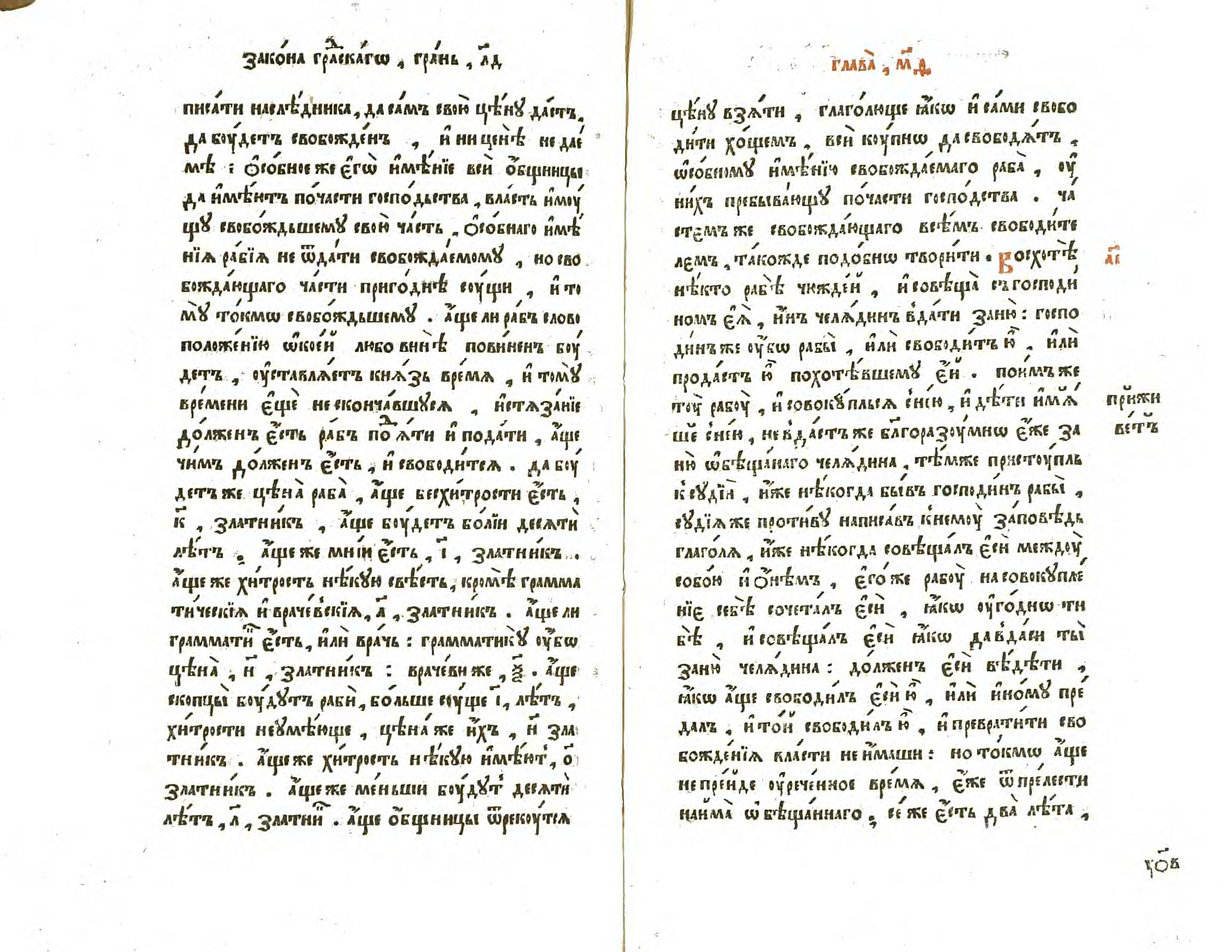 Зако́на гра́дскагѡ , гра́нь , л҃д
писа́ти наслѣ́дника , да са́мъ свою̀ цѣ́ну да́стъ ,
да бꙋ́детъ свобожде́нъ , и҆ ни ценѣ̀ не дае́
мѣ : ѻ҆со́бное же є҆гѡ̀ и҆мѣ́нїе всѝ ѻ҆́бщницы
да и҆мѣ́ютъ по ча́сти госпо́дьства , вла́сть и҆мꙋ́
щꙋ свобо́ждьшемꙋ свою̀ ча́сть , ѻ҆со́бнаго и҆мѣ́
нїѧ ра́бїѧ не ѿда́ти свобожда́емомꙋ , но сво
божда́ющаго ча́сти приго́днѣ сꙋ́щи , и҆ то
мꙋ̀ то́кмѡ свобо́ждьшемꙋ . а҆́ще ли ра́бъ сло́во
положе́нїю ѡ҆ ко́ей любо винѣ̀ пови́ненъ бꙋ́
детъ , ᲂу҆ставлѧ́етъ кнѧ́зь вре́мѧ , и҆ томꙋ̀
вре́мени є҆щѐ не сконча́вшꙋсѧ , и҆стѧза́нїе
до́лженъ є҆́сть ра́бъ под̾ѧ́ти и҆ пода́ти , а҆́ще
чи́мъ до́лженъ є҆́сть , и҆ свободи́тсѧ . да бꙋ́
детъ же цѣна̀ раба̀ , а҆́ще бесхи́трости є҆́сть ,
к҃ , зла́тникъ , а҆́ще бꙋ́детъ бо́лїи десѧтѝ
лѣ́тъ . а҆́ще же мні́и є҆́сть , і҃ , зла́тникъ .
а҆́ще же хи́трость нѣ́кꙋю свѣ́сть , кромѣ̀ грамма
ти́ческїѧ и҆ враче́вскїѧ , л҃ , зла́тникъ . а҆́ще ли
грамматі́къ є҆́сть , и҆лѝ вра́чь : граммати́кꙋ ᲂу҆́бѡ
цѣна̀ , н҃ , зла́тникъ : враче́ви же , ѯ҃ . а҆́ще
скопцы̀ бꙋ́дꙋтъ рабѝ , бо́льше сꙋ́ще і҃ , лѣ́тъ ,
хи́трости не ᲂу҆мѣ́юще , цѣна́ же и҆́хъ , н҃ зла́
тникъ . а҆́ще же хи́трость нѣ́кꙋю и҆мѣ́ютъ , ѻ҃
зла́тникъ . а҆́ще же ме́ньши бꙋ́дꙋтъ десѧтѝ
лѣ́тъ , л҃ , зла́тникъ . а҆́ще ѻ҆́бщницы ѿрекꙋ́тсѧ
глава̀ , м҃д
цѣ́нꙋ взѧ́ти , глаго́люще ꙗ҆́кѡ и҆ са́ми свобо
ди́ти хо́щемъ , всѝ кꙋ́пнѡ да свободѧ́тъ ,
ѡ҆со́бномꙋ и҆мѣ́нїю свобожда́емаго раба̀ , ᲂу҆
ни́хъ пребыва́ющꙋ по ча́сти госпо́дства . ча́
стемъ же свобожда́ющаго всѣ́мъ свободи́те
лемъ , та́кожде подо́бнѡ твори́ти . Восхотѣ̀
а҃і
нѣ́кто рабѣ̀ чꙋжде́й , и҆ совѣща̀ съ господи́
номъ є҆ѧ̀ , и҆́нъ челѧ́динъ вда́ти за ню̀ : госпо
ди́нъ же ᲂу҆́бѡ рабы̀ , и҆лѝ свободи́тъ ю҆̀ , и҆лѝ
прода́стъ ю҆̀ похотѣ́вшемꙋ є҆́й . пои́мъ же
тꙋ̀ рабꙋ̀ , и҆ совокꙋ́пльсѧ с не́ю , и҆ дѣ́ти и҆мѧ́
прижи
ше с не́и , не вда́стъ же бл҃горазꙋ́мнѡ є҆́же за
ветъ
ню̀ ѡ҆бѣща́наго челѧ́дина , тѣ́мже пристꙋ́пль
к сꙋдїѝ , и҆́же нѣ́когда бы́въ господи́нъ рабы̀ ,
сꙋдїѧ́ же проти́вꙋ написа́въ к немꙋ̀ за́повѣдь
глаго́лѧ , и҆́же нѣ́когда совѣща́лъ є҆сѝ междꙋ̀
собо́ю и҆ ѻ҆нѣ́мъ , є҆го́же рабꙋ̀ на совокꙋпле́
нїе себѣ̀ сочета́лъ є҆сѝ , ꙗ҆́кѡ ᲂу҆го́днѡ ти
бѣ̀ , и҆ совѣща́лъ є҆сѝ ꙗ҆́кѡ да вда́си ты̀
за ню̀ челѧ́дина : до́лженъ є҆сѝ вѣ́дѣти ,
ꙗ҆́кѡ а҆́ще свободи́лъ є҆сѝ ю҆̀ , и҆лѝ и҆но́мꙋ пре́
далъ , и҆ то́й свободи́лъ ю҆̀ , и҆ преврати́ти сво
божде́нїѧ вла́сти не и҆́маши : но то́кмѡ а҆́ще
не пре́йде ᲂу҆рече́нное вре́мѧ , є҆́же ѿ пре́лести
найма̀ ѡ҆бѣща́ннаго , се́ же є҆́сть два̀ лѣ́та ,
уѻ҃в